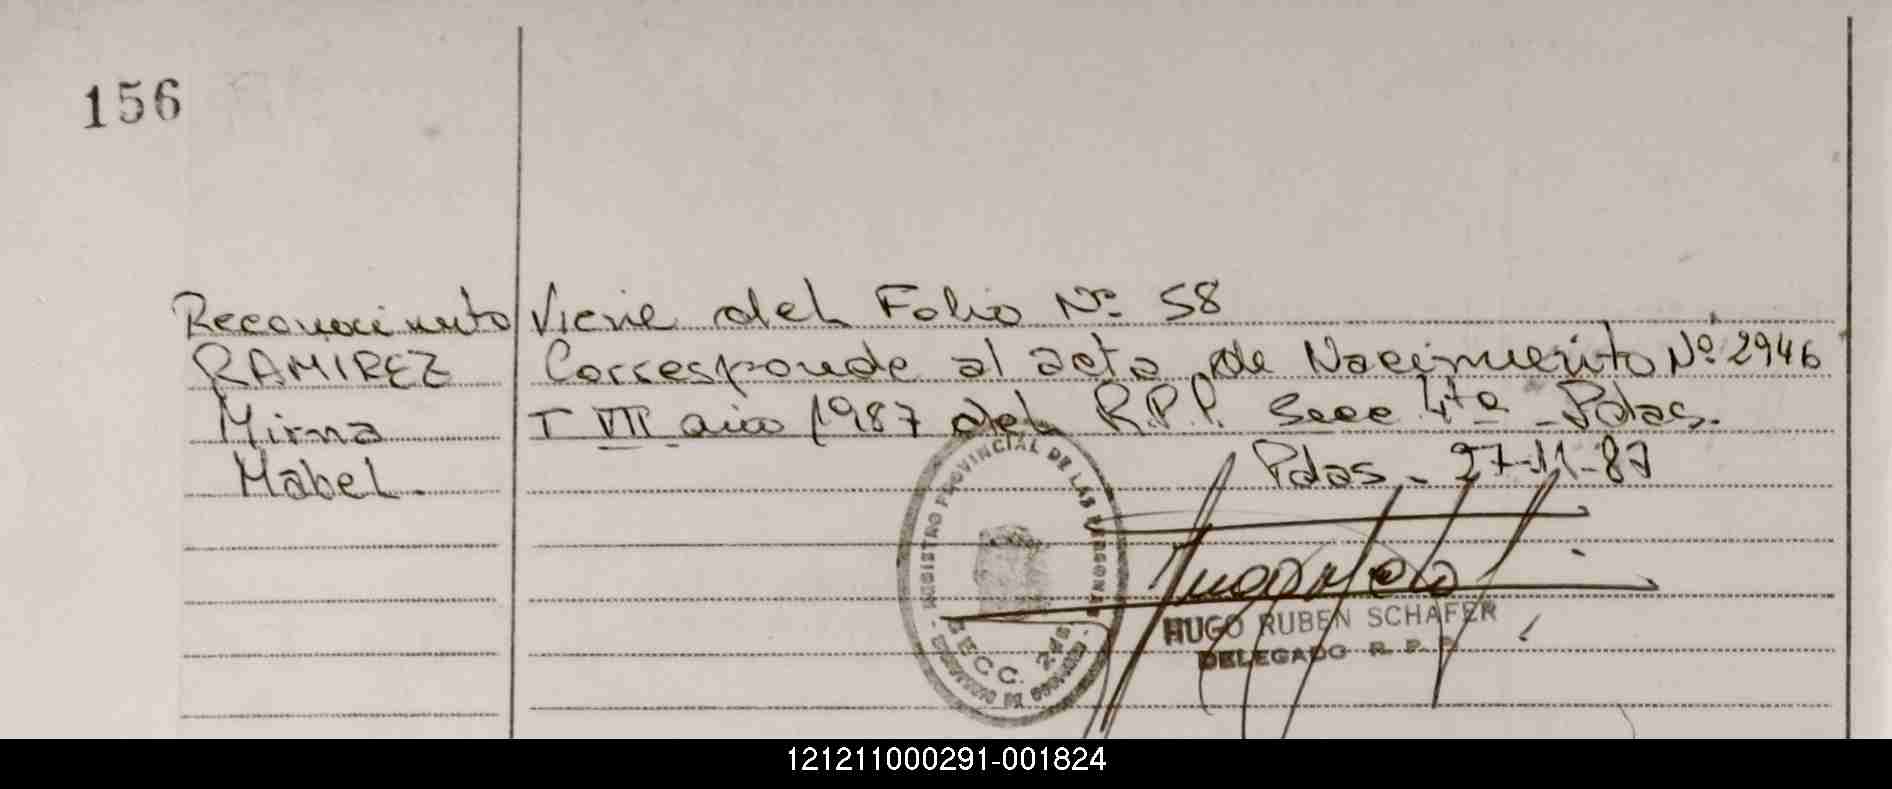 156
Reconocimiento Viene del Folio Nº 58
RAMIREZ Corresponde al acta de Nacimiento Nº 2946
Mirna T VII año 1987 del R.P.P. Secc 4ta - Pdas.
Mabel. Pdas - 27-11-87
REGISTRO PROVINCIAL DE LAS PERSONAS
SECC. 2da
HUGO RUBEN SCHAFER
DELEGADO R. P. P.
121211000291-001824